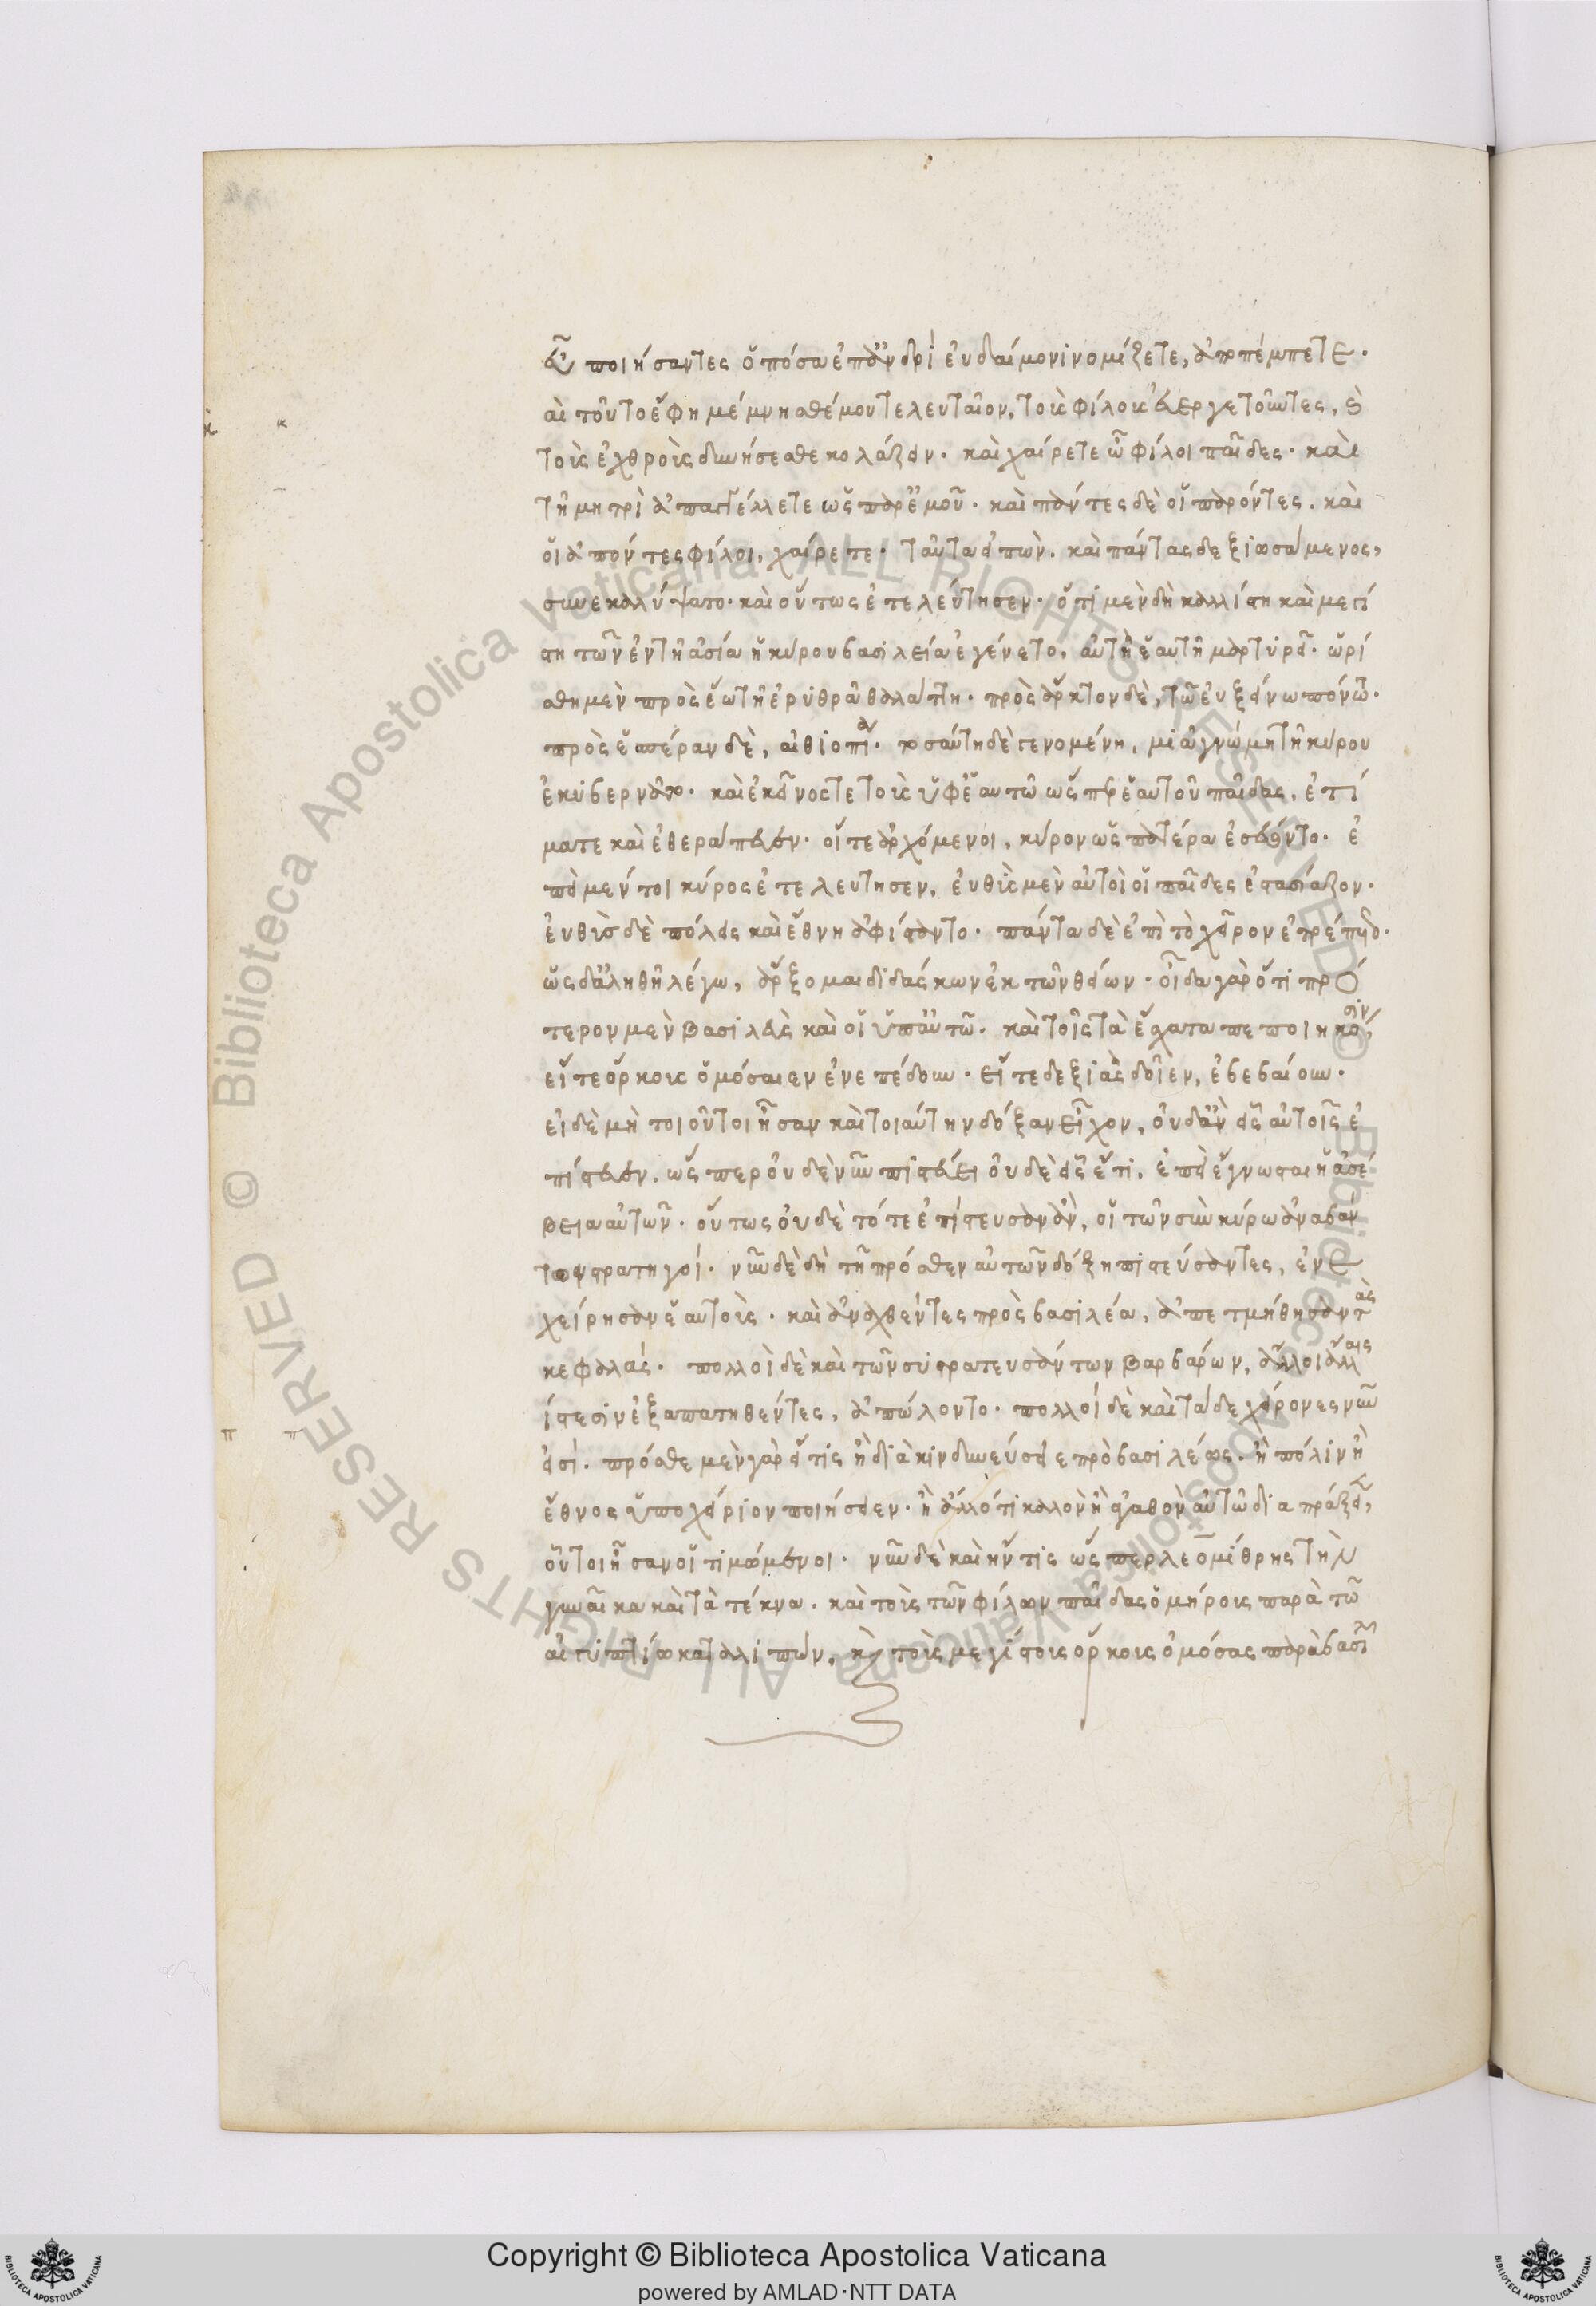 εὖ ποιήσαντες ὁπόσα ἐπ' ἀνδρὶ εὐδαίμονι νομίζεται, ἀποπέμπετε.
καὶ τοῦτο ἔφη μέμνησθέ μου τελευταῖον, τοὺς φίλους εὐεργετοῦντες, καὶ
τοὺς ἐχθροὺς δυνήσεσθε κολάζειν. καὶ χαίρετε ὦ φίλοι παῖδες. καὶ
τῇ μητρὶ ἀπαγγέλλετε ὡς παρ' ἐμοῦ. καὶ πάντες δὲ οἱ παρόντες, καὶ
οἱ ἀπόντες φίλοι, χαίρετε. ταῦτα εἰπὼν, καὶ πάντας δεξιωσάμενος,
συνεκαλύψατο. καὶ οὕτως ἐτελεύτησεν. ὅτι μὲν δὴ καλλίστη καὶ μεγί
στη τῶν ἐν τῇ ἀσία ἡ κύρου βασιλεία ἐγένετο, αὐτὴ ἑαυτῇ μαρτυρεῖ. ὡρί
σθη μὲν πρὸς ἕω τῇ ἐρυθρᾷ θαλάττη. πρὸς ἄρκτον δὲ, τῷ εὐξείνω πόντω.
πρὸς ἑσπέραν δὲ, αἰθιοπία. τοσαύτη δὲ γενομένη, μιᾷ γνώμη τῇ κύρου
ἐκυβερνᾶτο. καὶ ἐκεῖνός τε τοὺς ὑφ' ἑαυτῷ ὥσπερ ἑαυτοῦ παῖδας, ἐτί
μα τε καὶ ἐθεράπευεν. οἵ τε ἀρχόμενοι, κύρον ὡς πατέρα ἐσέβοντο. ἐ
πεὶ μέντοι κύρος ἐτελεύτησεν, εὐθὺς μὲν αὐτοῦ οἱ παῖδες ἐστασίαζον.
εὐθὺς δὲ πόλεις καὶ ἔθνη ἀφίσταντο. πάντα δὲ ἐπὶ τὸ χεῖρον ἐτρέπετο.
ὡς δ' ἀληθῆ λέγω, ἄρξομαι διδάσκων ἐκ τῶν θείων. οἶδα γὰρ ὅτι πρό
τερον μὲν βασιλεὺς καὶ οἱ ὑπ' αὐτῷ. καὶ τοῖς τὰ ἔσχατα πεποιηκόσιν,
εἴτε ὅρκους ὀμόσαιεν ἐνεπέδουν. εἴτε δεξιὰς δοῖεν, ἐβεβαίουν.
εἰ δὲ μὴ τοιοῦτοι ἦσαν καὶ τοιαύτην δόξαν εἶχον, οὐδ' ἂν εἷς αὐτοῖς ἐ
πίστευεν. ὥσπερ οὐδὲ νῦν πιστεύει οὐδὲ εἷς ἔτι, ἐπεὶ ἔγνωσται ἡ ἀσέ
βεια αὐτῶν. οὕτως οὐδὲ τότε ἐπίστευσαν ἂν, οἱ τῶν σὺν κύρω ἀναβάν
των στρατηγοί. νῦν δὲ δὴ τῇ πρόσθεν αὐτῶν δόξη πιστεύσαντες, ἐνε
χείρησαν ἑαυτοὺς. καὶ ἀναχθέντες πρὸς βασιλέα, ἀπετμήθησαν τὰς
κεφαλάς. πολλοὶ δὲ καὶ τῶν συστρατευσάντων βαρβάρων, ἄλλοι ἄλλαις
πίστεσιν ἐξαπατηθέντες, ἀπώλοντο. πολλοί δὲ καὶ τάδε χείρονες νῦν
εἰσὶ. πρόσθε μὲν γὰρ εἴ τις ἢ διακινδυνεύσειε πρὸ βασιλέως, ἢ πόλιν ἢ
ἔθνος ὑποχείριον ποιήσειεν. ἢ ἄλλό τι καλὸν ἢ ἀγαθὸν αὐτῷ διαπράξειεν,
οὗτοι ἦσαν οἱ τιμώμενοι. νῦν δὲ καὶ ἤν τις ὥσπερ λεομίθρης τὴν
γυναῖκα καὶ τὰ τέκνα. καὶ τοὺς τῶν φίλων παῖδας ὁμήρους παρὰ τῷ
αἰγυπτίω καταλιπών, καὶ τοὺς μεγίστους ὅρκους ὀμόσας παραβὰς